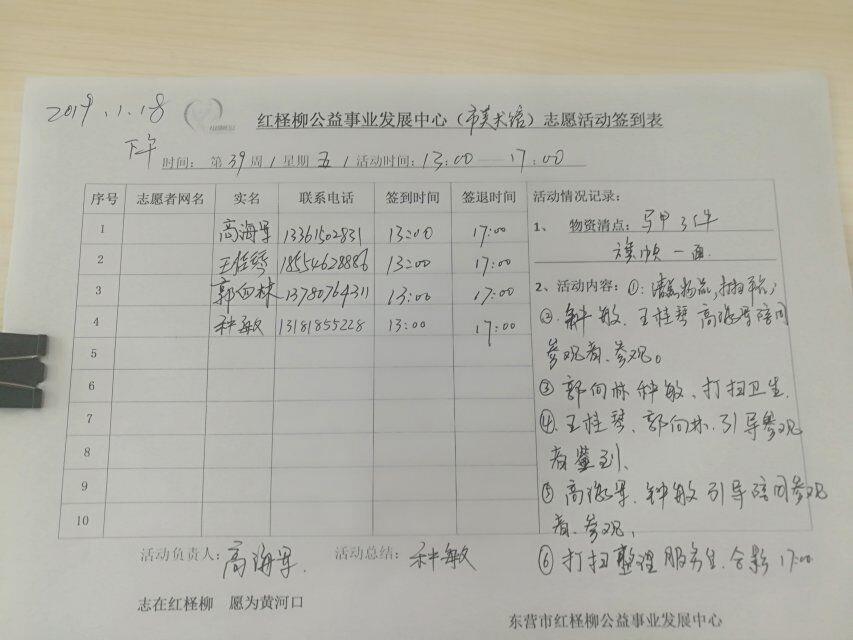 2019.1.18
红柽柳公益事业发展中心（市美术馆）志愿活动签到表
下午
时间：第39周/星期五/活动时间：13:00——17:00
序号 志愿者网名 实名 联系电话 签到时间 签退时间 活动情况记录：
1 高海军 13361502831 13:00 17:00
2 王桂琴 18554628886 13:00 17:00
3 郭向林 13780764311 13:00 17:00
4 种敏 13181855228 13:00 17:00
5
6
7
8
9
10
1、 物资清点：马甲3件
旗帜一面
2、活动内容：①：清点物品，打扫
②.钟敏、王桂琴高海军陪同
参观者、参观。
③郭向林种敏、打扫卫生.
④、王桂琴、郭向林、引导参观
者签到、
⑤高海军、钟敏引导陪同参观
者、参观，
⑥打扫整理服务台、合影17:00
活动负责人：高海军. 活动总结：种敏
志在红柽柳 愿为黄河口
东营市红柽柳公益事业发展中心